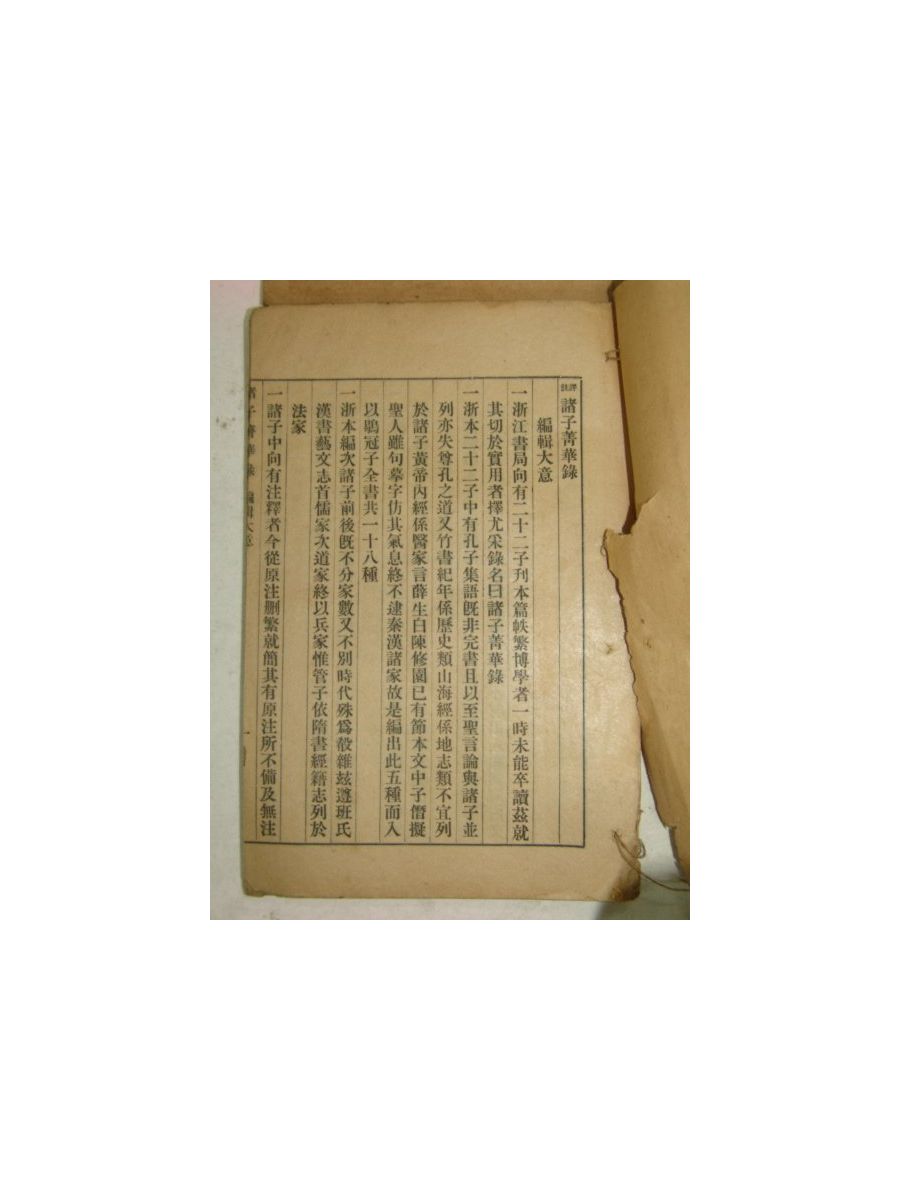 評註諸子菁華錄
編輯大意
一浙江書局向有二十二子刋本篇帙繁博學者一時未能卒讀茲就
其切於實用者擇尤采錄名曰諸子菁華錄
一浙本二十二子中有孔子集語旣非完書且以至聖言論與諸子並
列亦失尊孔之道又竹書紀年係歷史類山海經係地志類不宜列
於諸子黃帝內經係醫家言薛生白陳修園已有節本文中子僭擬
聖人雖句摹字仿其氣息終不逮秦漢諸家故是編出此五種而入
以鶡冠子全書共一十八種
一浙本編次諸子前後旣不分家數又不別時代殊爲殽雜玆遵班氏
漢書藝文志首儒家次道家終以兵家惟管子依隋書經籍志列於
法家
一諸子中向有注釋者今從原注刪繁就簡其有原注所不備及無注
諸子菁華錄 編輯大意 一